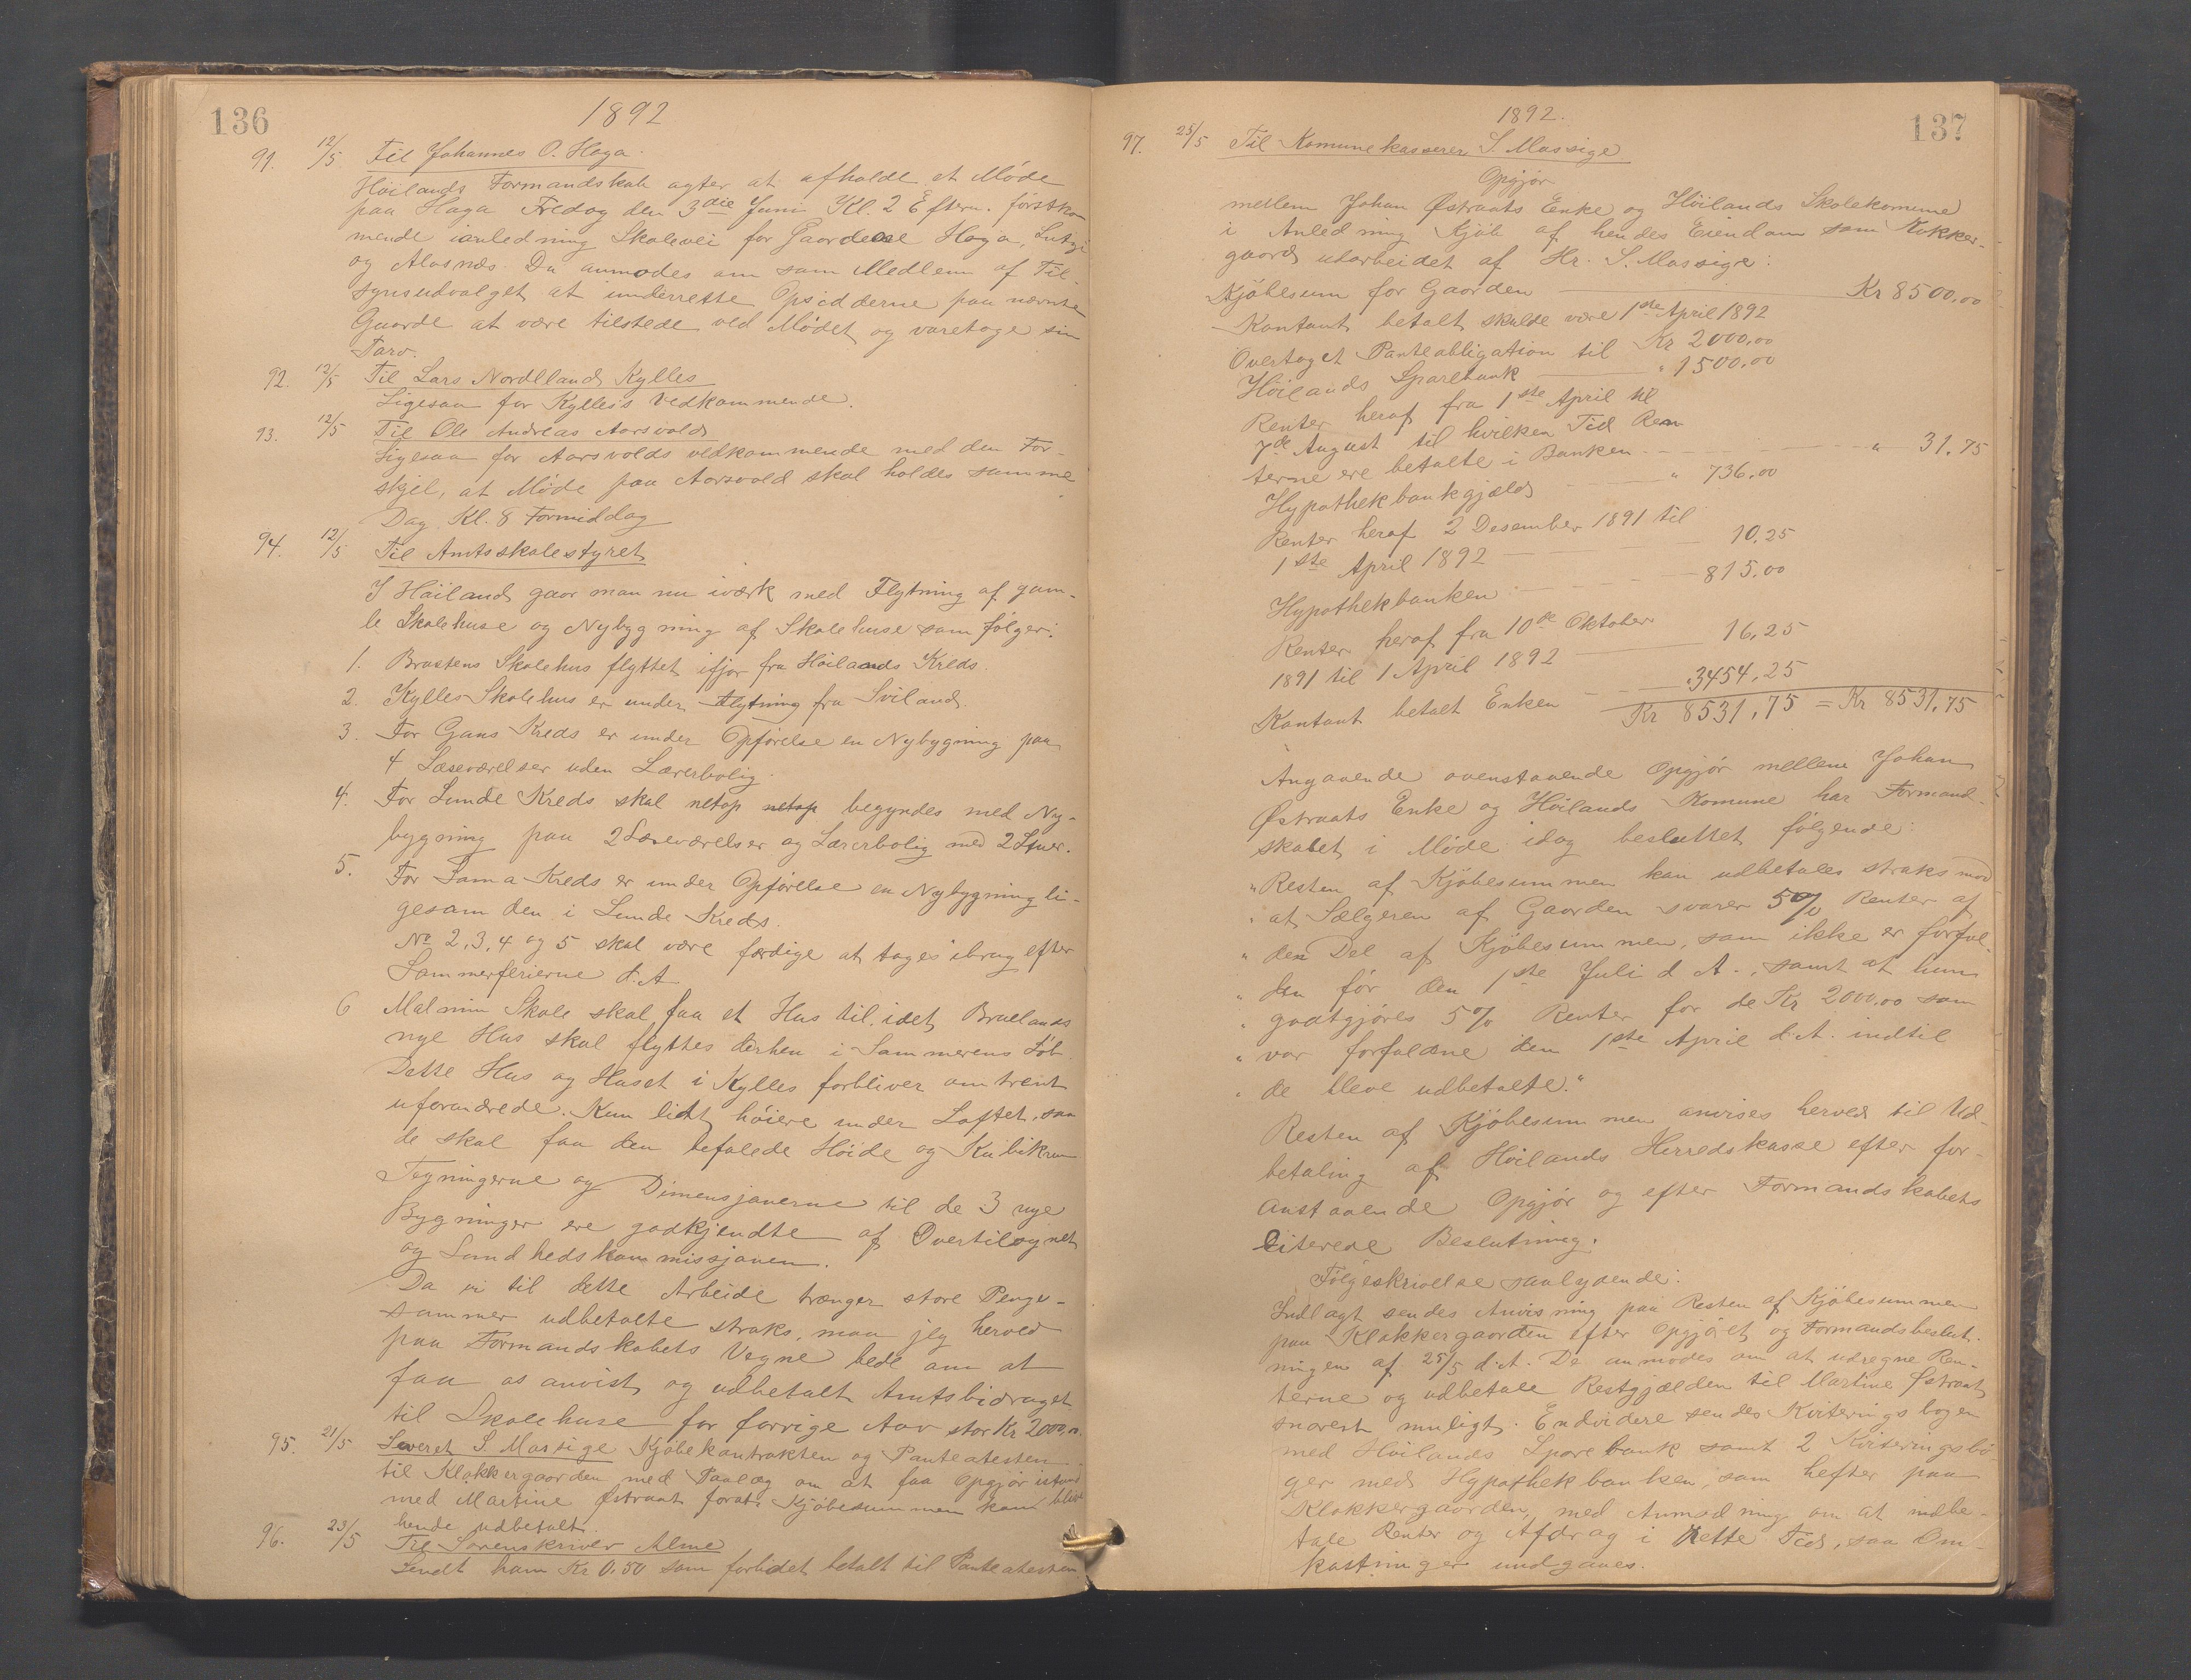 136
1892
91. 12/5 Til Johannes O. Haga.
Höilands Formandskab agter at afholde et Møde
paa Haga Fredag den 3die Juni Kl. 2 Eftern. førstkom
mende ianledning Skolevei for Gaardene Haga,
og Alasnæs. Du anmodes om som Medlem af Til-
synsudvalget at underrette Opsidderne paa nævnte
Gaarde at være tilstede ved Mødet og varetage sin
Tarv.
92. 12/5 Til Lars Nordlland Kylles
Ligesaa for Kylles's Vedkommende.
93. 12/5 Til Ole Andreas Aarsvold
Ligesaa for Aarsvolds vedkommende med den For-
skjel, at Møde paa Aarsvold skal holdes samme
Dag Kl. 8 Formiddag
94. 12/5 Til Amtsskolestyret
I Höiland gaar man nu iværk med Flytning af gam-
le Skolehuse og Nybygning af Skolehuse som følger:
1. Brastens Skolehus flyttet ifjor fra Höilands Kreds.
2. Kylles Skolehus er under Flytning fra Sviland.
3. For Gans Kreds er under Opførelse en Nybygning paa
4 Læseværelser uden Lærerbolig.
4. For Lunde Kreds skal netop netop begyndes med Ny-
bygning paa 2 Læseværelser og Lærerbolig med 2 Stuer.
5. For Foma Kreds er under Opførelse en Nybygning li-
gesom den i Lunde Kreds.
No 2, 3, 4 og 5 skal være færdige at tages ibrug efter
Sommerferierne d. A.
6 Malmin Skole skal faa et Hus til, idet Bruelands
nye Hus skal flyttes derhen i Sommerens Løb.
Dette Hus og Huset i Kylles forbliver omtrent
uforandrede. Kun lidt høiere under Loftet, saa
de skal faa den befalede Höide og Kubikrum
Tegningerne og Dimensjonerne til de 3 nye
Bygninger ere godkjendte af Overtilsynet
og Sundhedskommissjonen.
Da vi til dette Arbeide trænger store Penge-
sommer udbetalte straks, maa jeg herved
paa Formandskabets Vegne bede om at
faa os anvist og udbetalt Amtsbidraget
til Skolehuse for forrige Aar stor Kr 2000,00.
95. 21/5 Leveret S. Massige Kjøbekontrakten og Panteatesten
til Klokkergaarden med Paalæg om at faa Opgjør istand
med Martine Østraat forat Kjøbesummen kan blive
hende udbetalt.
96. 23/5 Til Sorenskriver Alme
Sendt ham Kr 0,50 som forbidet betalt til Panteatesten
1892.
137
97. 25/5 Til Komunekasserer S. Massige
Opgjør
mellem Johan Østraats Enke og Höilands Skolekomune
i Anledning Kjøb af hendes Eiendom som Klokker-
gaard utarbeidet af Hr. S. Massige:
Kjøbesum for Gaarden Kr 8500,00
Kontant betalt skulde være 1ste April 1892
Kr 2000,00
Overtaget Panteobligation til
Höilands Sparebank " 1500,00
Renter heraf fra 1ste April til
7de August til hvilken Tid Ren
terne ere betalte i Banken " 31,75
Hypothekbankgjæld " 736,00
Renter heraf 2 Desember 1891 til
1ste April 1892 10,25
Hypothekbanken 815,00
Renter heraf fra 10de Oktober
1891 til 1 April 1892 16,25
Kontant betalt Enken 3454,25
Kr 8531,75 = Kr 8531,75
Angaaende ovenstaaende Opgjør mellem Johan
Østraats Enke og Höilands Komune har Formand-
skabet i Møde idag besluttet følgende:
"Resten af Kjøbesummen kan udbetales straks mod
" at Sælgeren af Gaarden svarer 5% Renter af
" den Del af Kjøbesummen, som ikke er forfal-
" den før den 1ste Juli d. A., samt at hun
" godtgjøres 5% Renter for de Kr 2000,00 som
" var forfaldne den 1ste April d. A. indtil
" de bleve udbetalte."
Resten af Kjøbesummen anvises herved til Ud-
betaling af Höilands Herredskasse efter for-
anstaaende Opgjør og efter Formandskabets
citerede Beslutning.
Følgeskrivelse saalydende:
Indlagt sendes Anvisning paa Resten af Kjøbesummen
paa Klokkergaarden efter Opgjøret og Formandsbeslut-
ningen af 25/5 d. A. De anmodes om at udregne Ren-
terne og udbetale Restgjælden til Martine Østraat
snarest muligt. Endvidere sendes Kviteringsbogen
med Höilands Sparebank samt 2 Kviteringsbö-
ger med Hypothekbanken, som hefter paa
Klokkergaarden, med Anmodning om at indbe-
tale Renter og Afdrag i rette Tid, saa Om-
kostninger undgaaes.